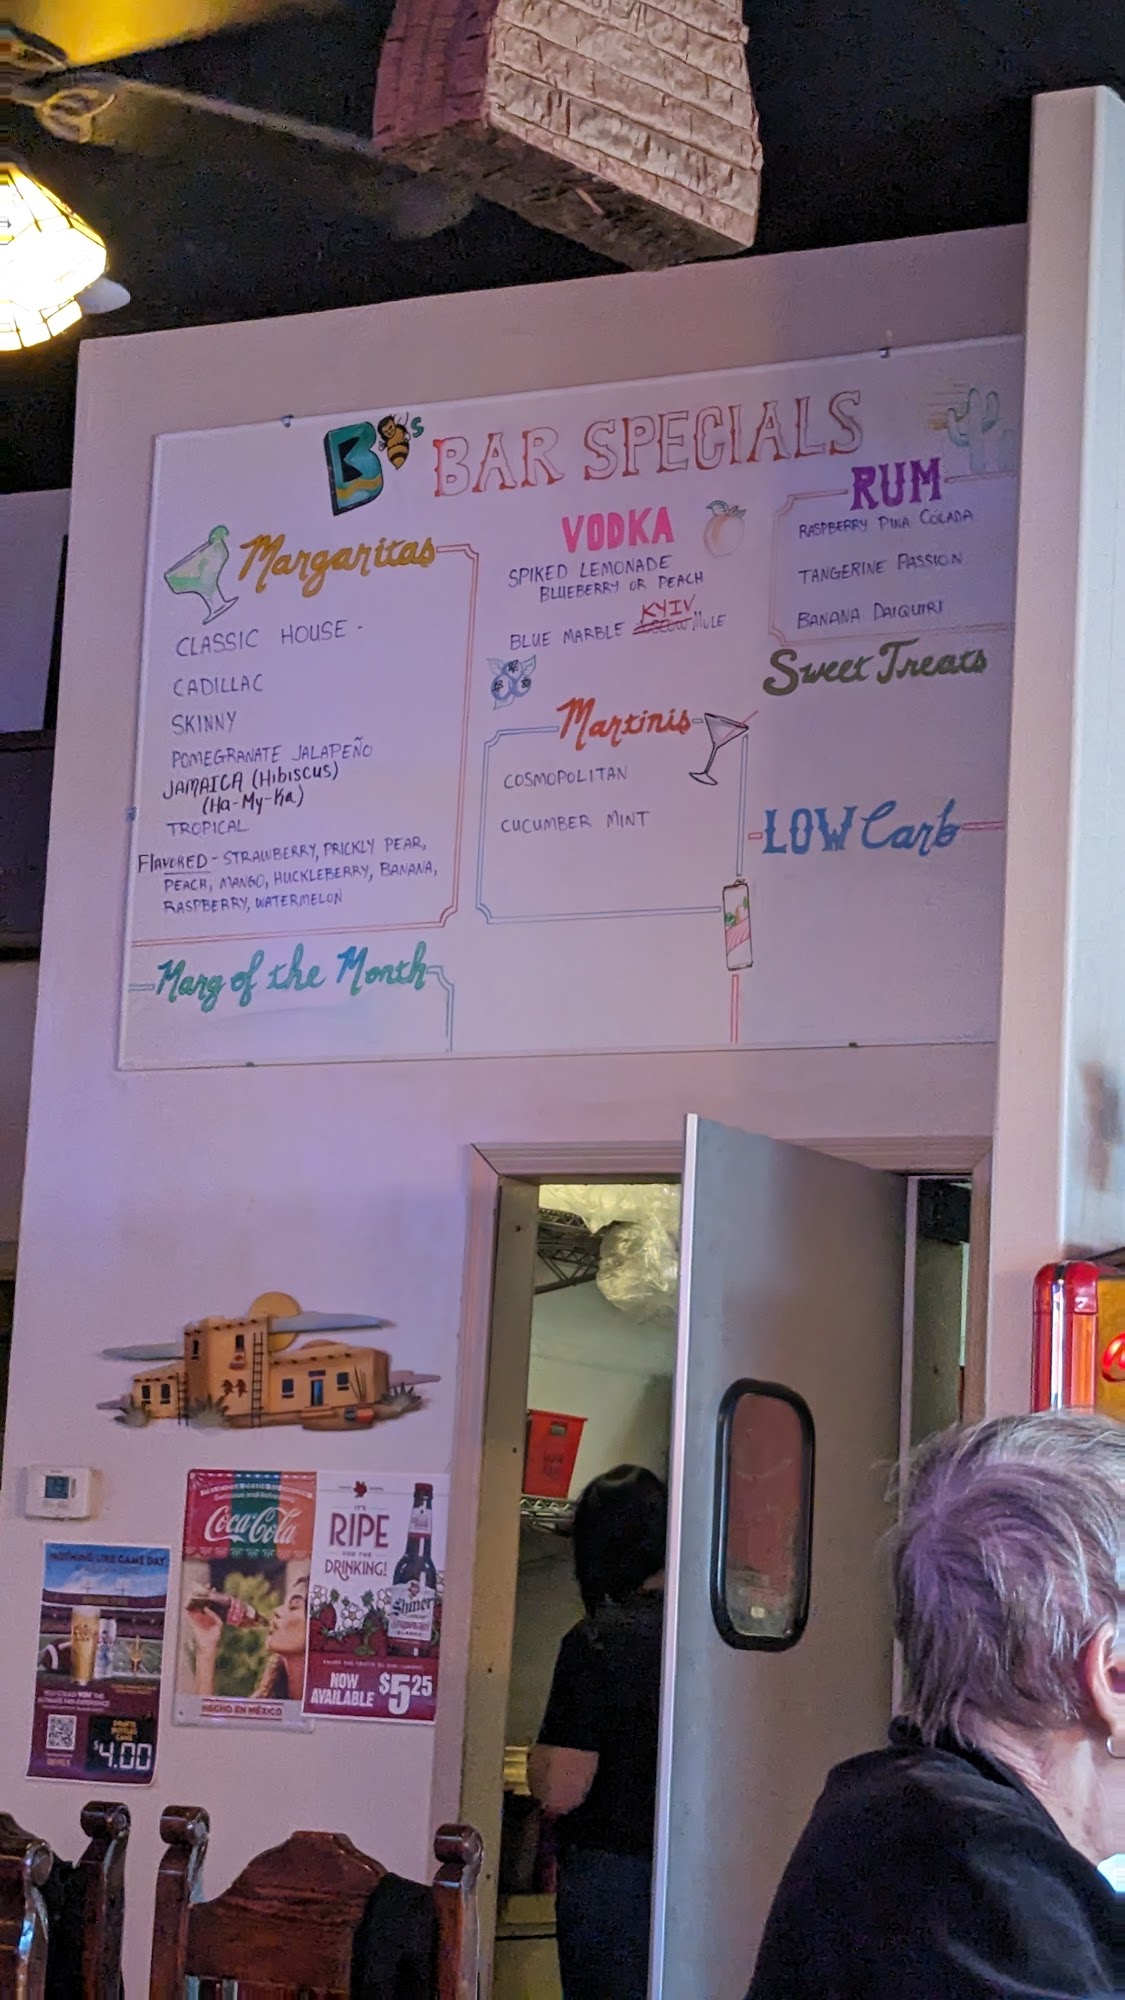 B's BAR SPECIALS
Margaritas
CLASSIC HOUSE -
CADILLAC
SKINNY
POMEGRANATE JALAPEÑO
JAMAICA (Hibiscus)
(Ha-My-Ka)
TROPICAL
FLAVORED - STRAWBERRY, PRICKLY PEAR,
PEACH, MANGO, HUCKLEBERRY, BANANA,
RASPBERRY, WATERMELON
Marg of the Month
VODKA
SPIKED LEMONADE
BLUEBERRY OR PEACH
KYIV
BLUE MARBLE MULE
Martinis
COSMOPOLITAN
CUCUMBER MINT
RUM
RASPBERRY PINA COLADA
TANGERINE PASSION
BANANA DAIQUIRI
Sweet Treats
LOW Carb
NOTHING LIKE GAME DAY
$4.00
Delicious and Refreshing
Coca-Cola
HECHO EN MÉXICO
IT'S
RIPE
FOR THE
DRINKING!
Shiner
NOW
AVAILABLE $5.25